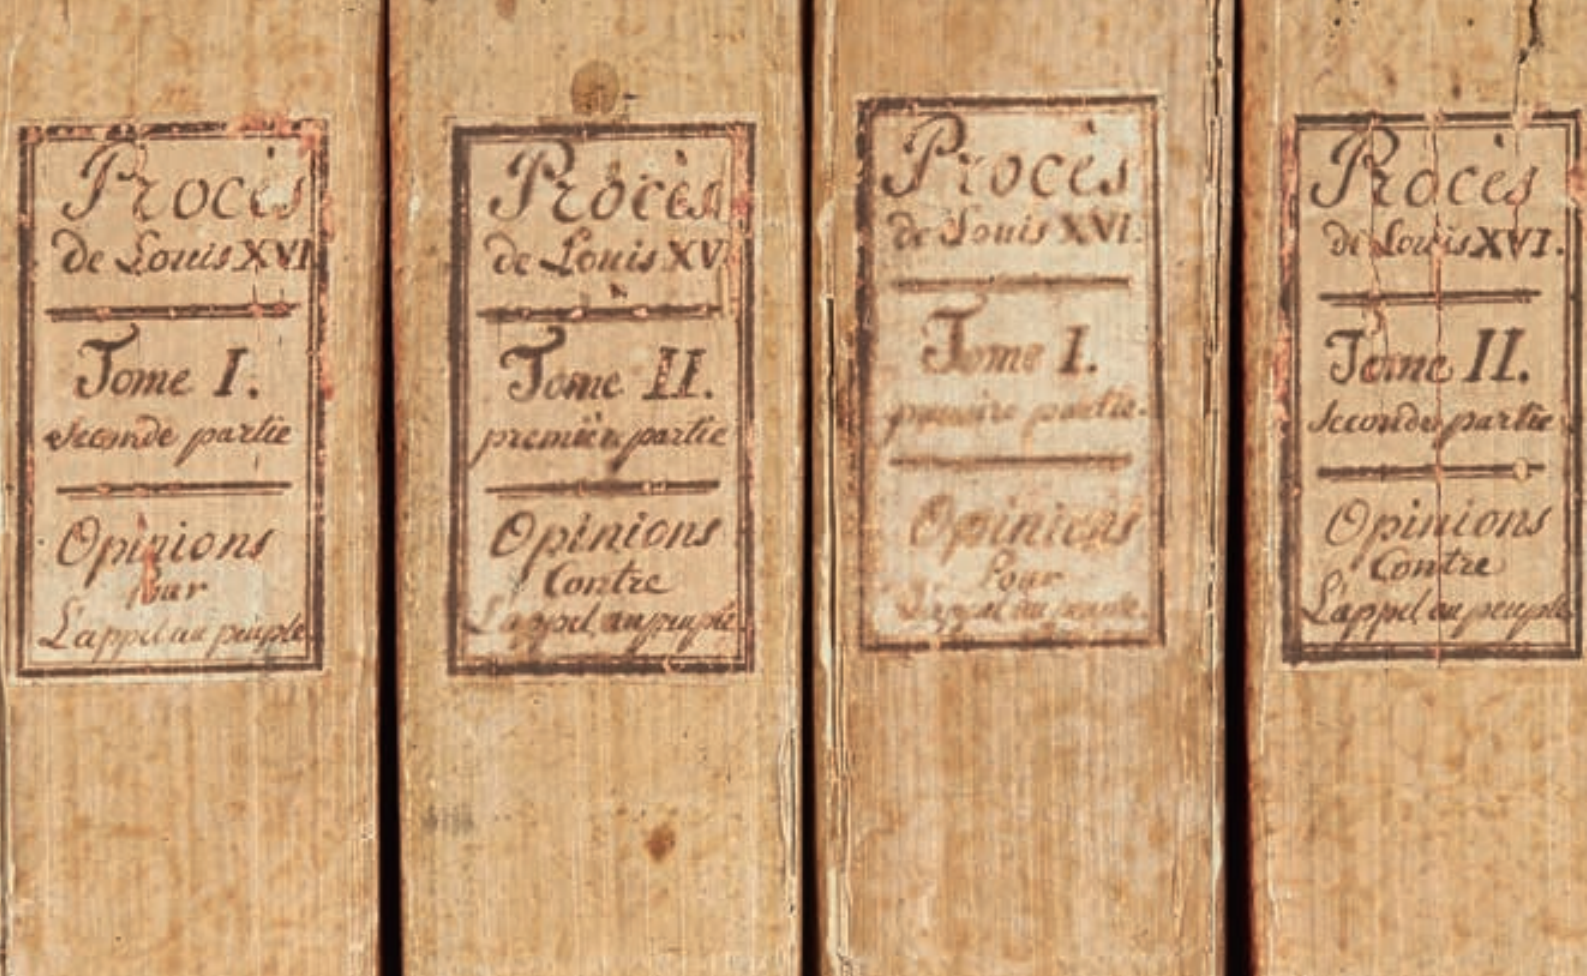 Procès
de Louis XVI
Tome I.
seconde partie
Opinions
Pour
L'appel au peuple.
Procès
de Louis XV
Tome II.
premiere partie
Opinions
Contre
L'appel au peuple.
Procès
de Louis XVI.
Tome I.
premiere partie.
Opinions
Pour
L'appel au peuple.
Procès
de Louis XVI.
Tome II.
Seconde partie
Opinions
Contre
L'appel au peuple